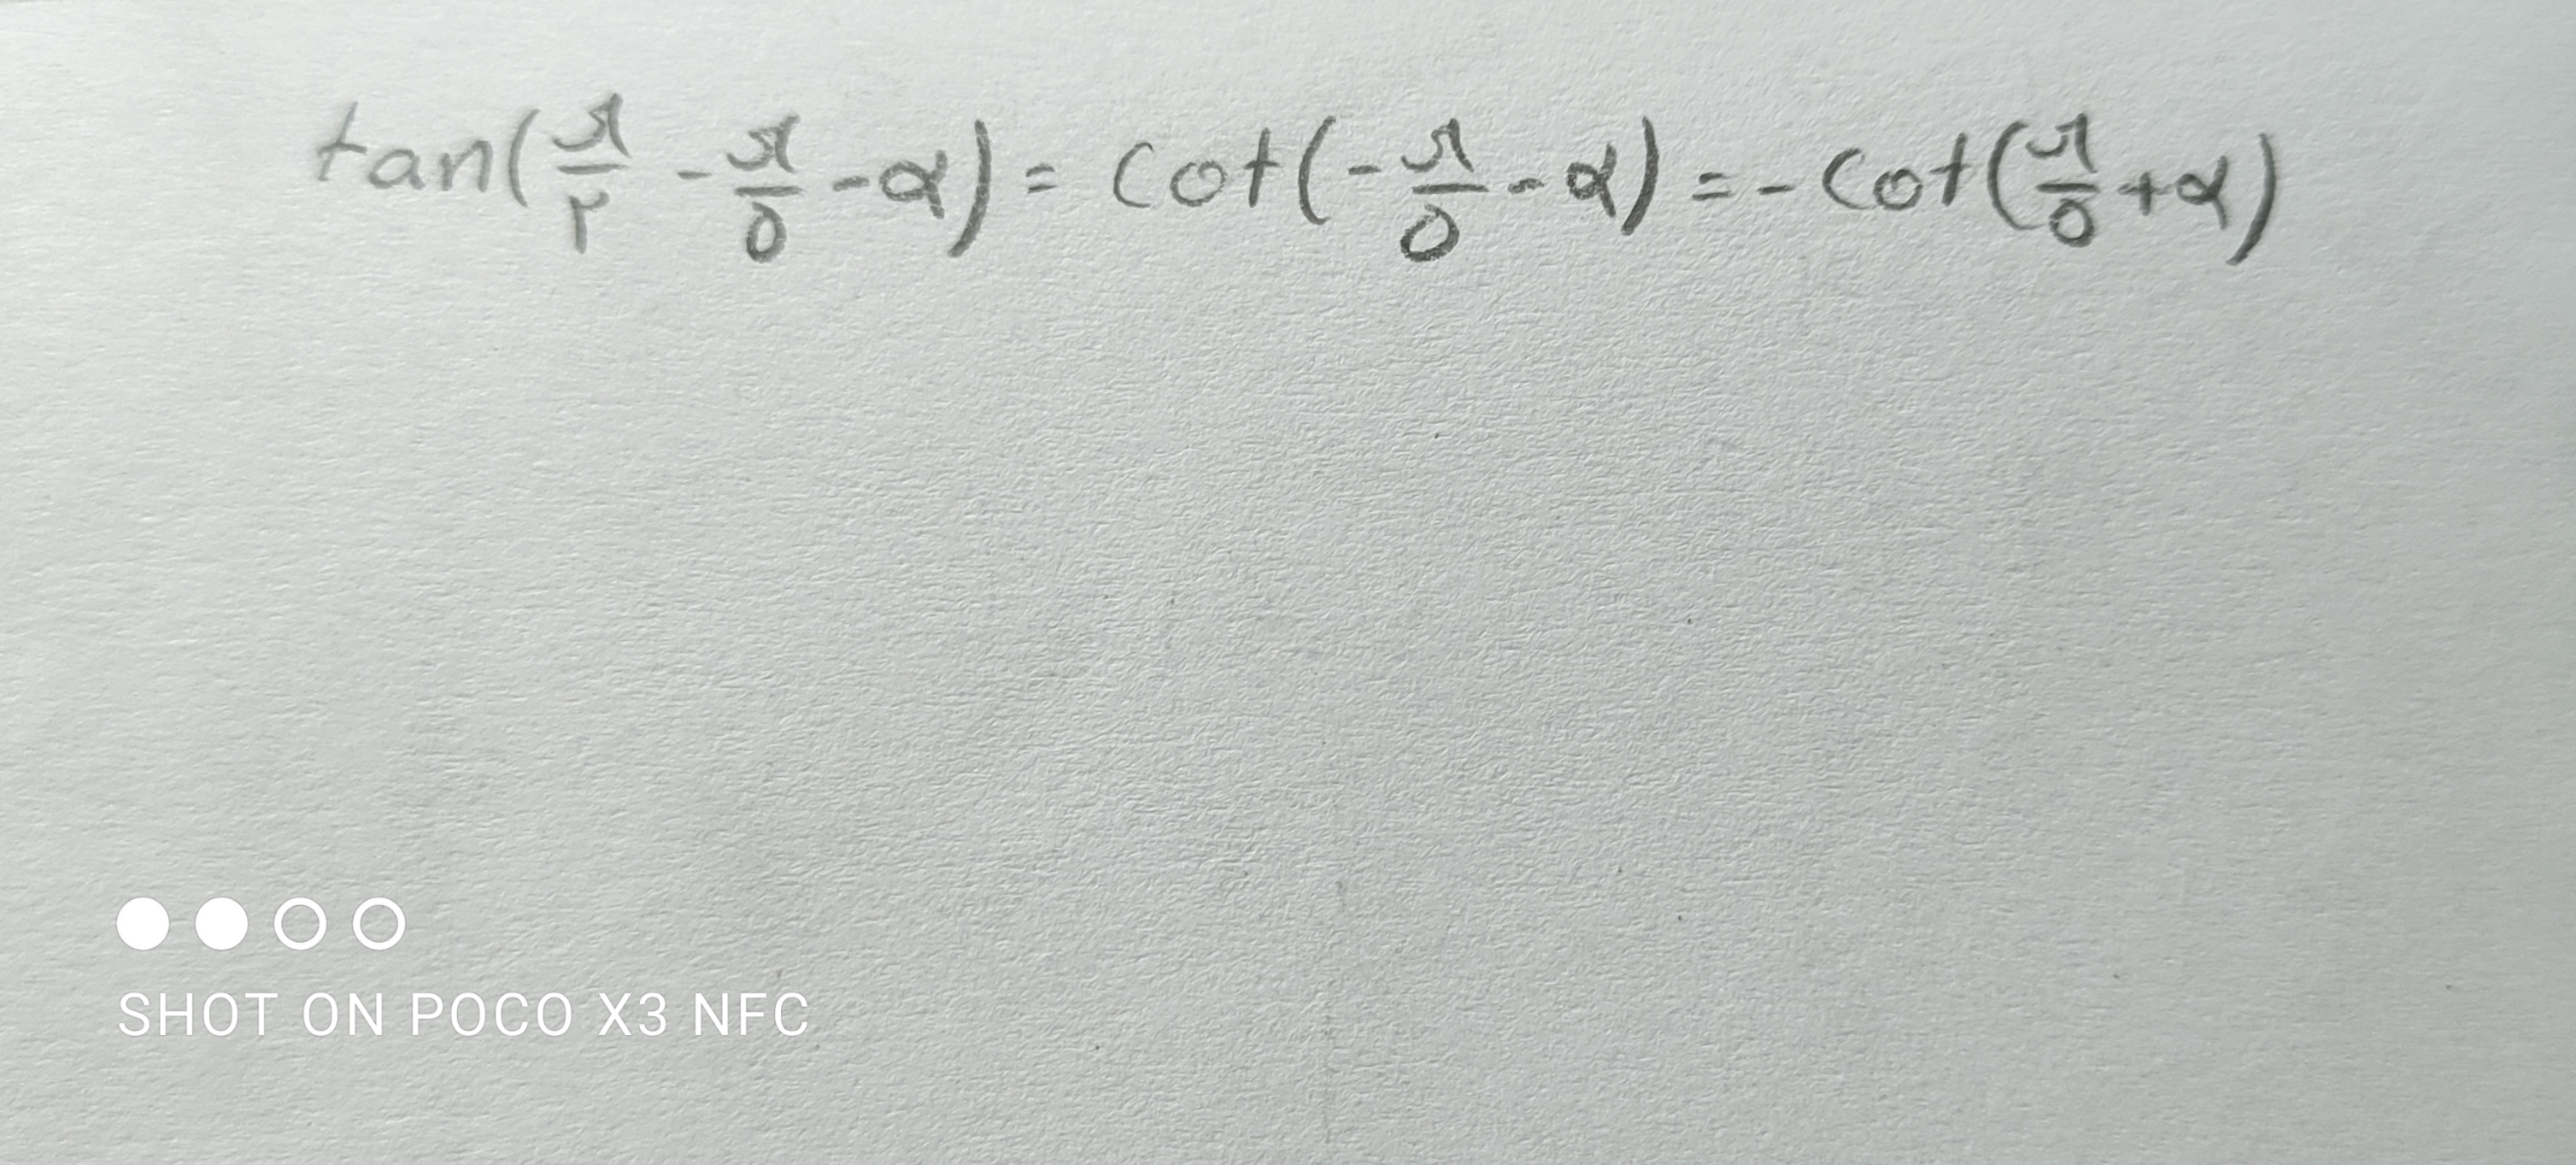 tan(π/۲ - π/۵ - α) = cot(-π/۵ - α) = - cot(π/۵ + α)
SHOT ON POCO X3 NFC